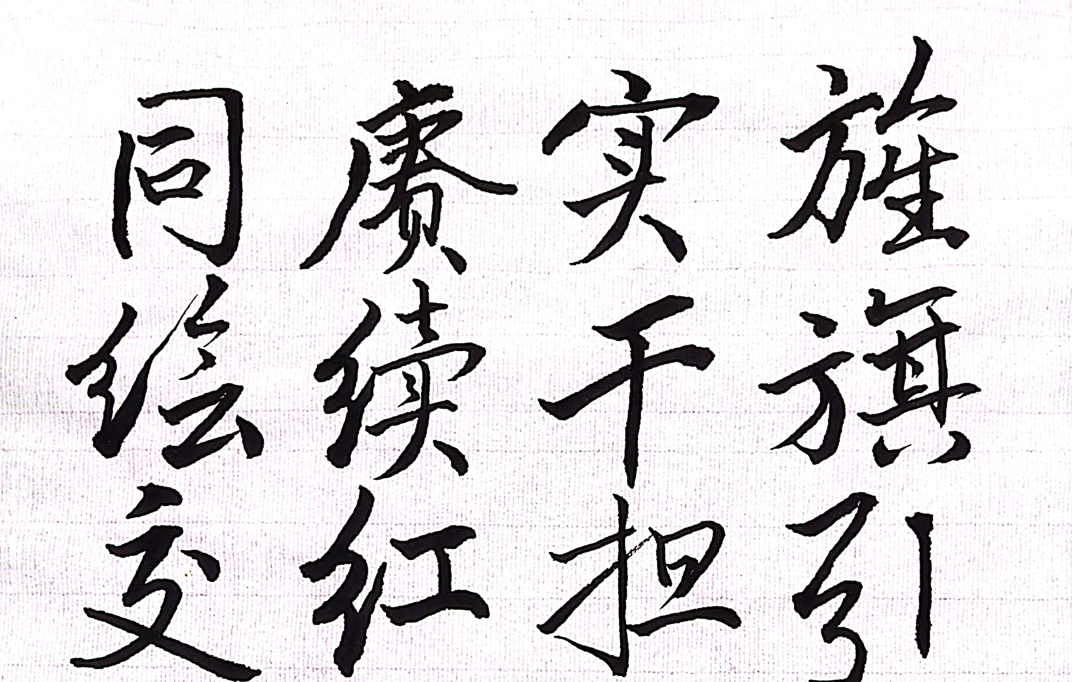 旌旗引
实干担
赓续红
同绘交